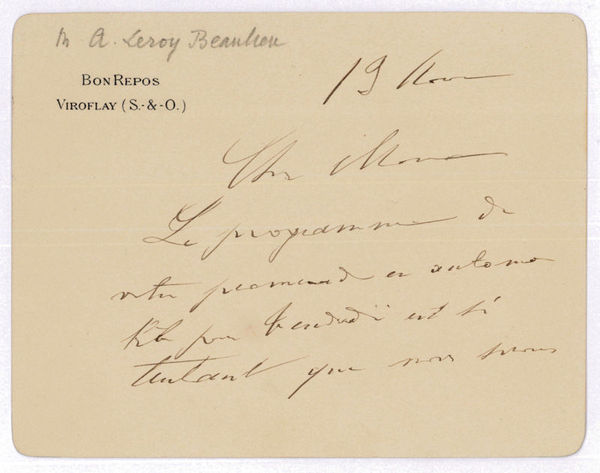 M A. Leroy Beaulieu
BON REPOS
VIROFLAY (S.-&-O.)
19 Nov
Cher Mon
Le programme de
votre promenade en automo
bile pour Vendredi est si
tentant que nous